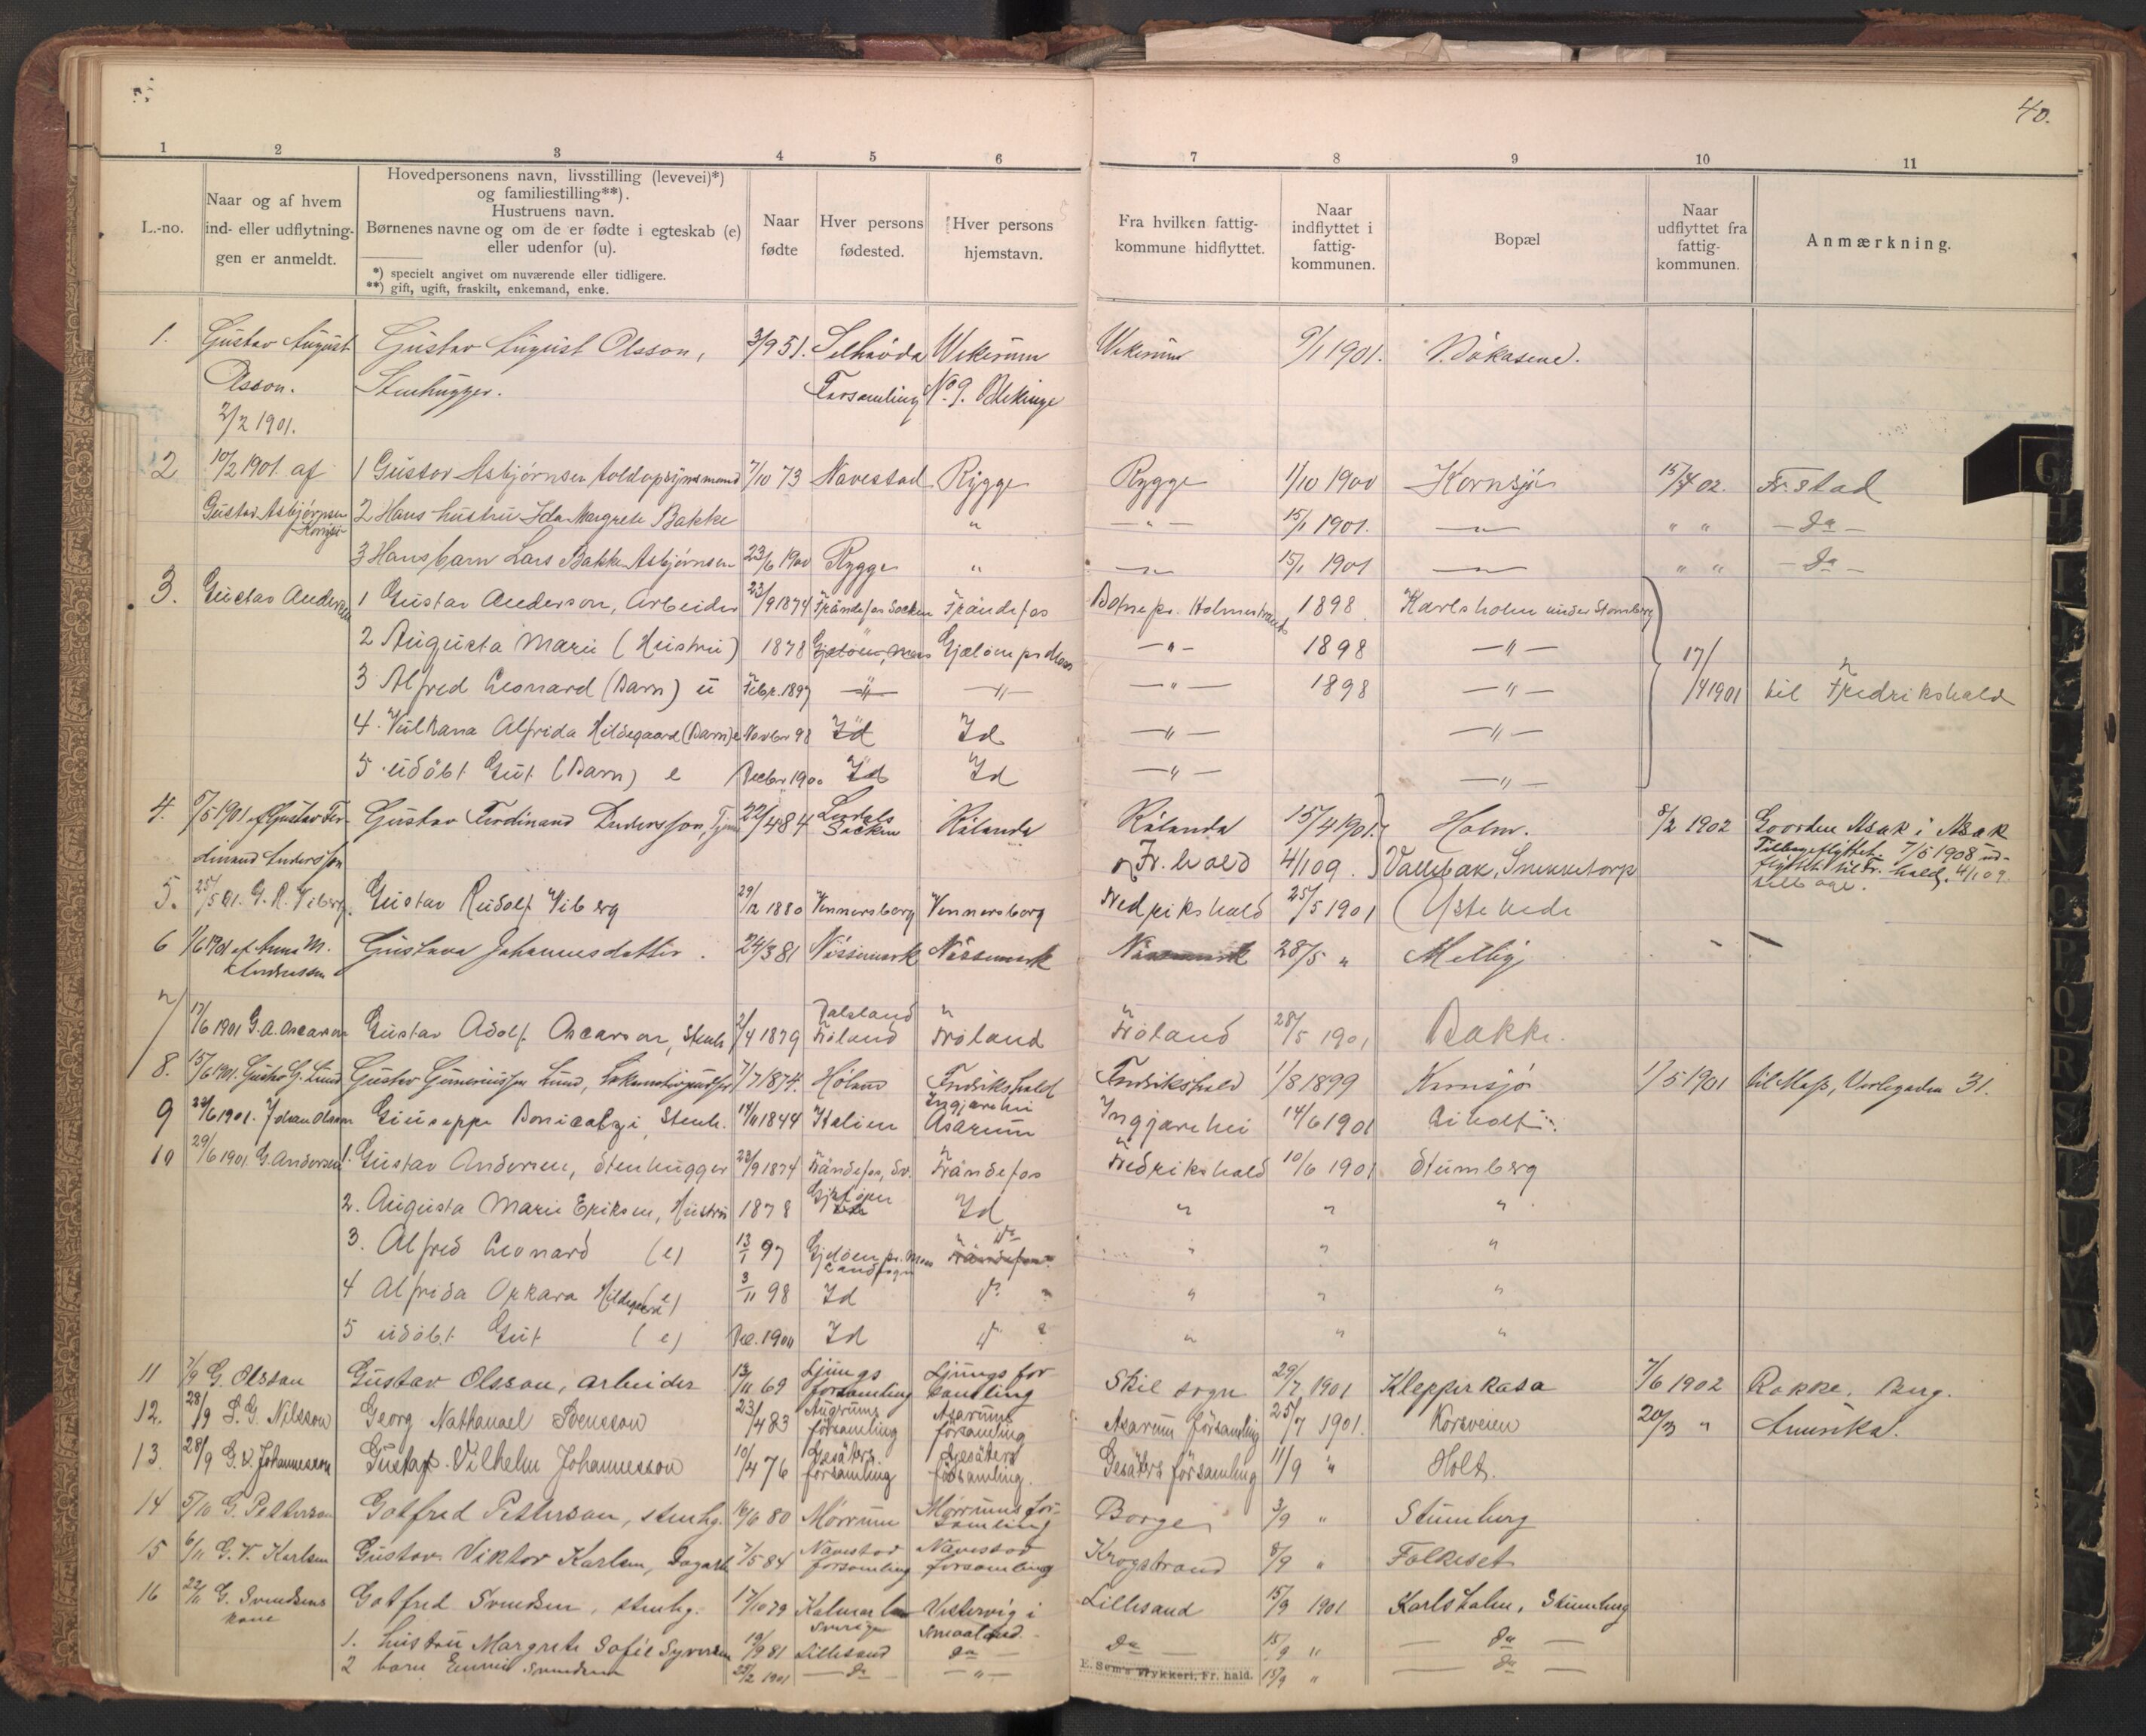 40.
1 2 3 4 5 6 7 8 9 10 11
L.-no.
Naar og af hvem
ind- eller udflytnin-
gen er anmeldt.
Hovedpersonens navn, livsstilling (levevei)*)
og familiestilling**).
Hustruens navn.
Børnenes navne og om de er fødte i egteskab (e)
eller udenfor (u).
*) specielt angivet om nuværende eller tidligere.
**) gift, ugift, fraskilt, enkemand, enke.
Naar
fødte
Hver persons
fødested.
Hver persons
hjemstavn.
Fra hvilken fattig-
kommune hidflyttet.
Naar
indflyttet i
fattig-
kommunen.
Bopæl
Naar
udflyttet fra
fattig-
kommunen.
Anmærkning.
1. Gustav August Gustav August Olsson, 3/9 51. Wekerum Wekerum 9/1 1901.
Olsson. Stenhugger. Forsamling No 9. Blekinge
2/2 1901.
2 10/2 1901. af 1 Gustav Asbjørnsen toldopsynsmand 7/10 73 Navestad Rygge Rygge 1/10 1900 Kornsjø 15/4 02. Fr.stad
Gustav Asbjørnsen 2 Hans hustru Ida Margrete Bakke " — " — 15/1 1901. — " — " " — Do —
Kornsjø
3 Hans barn Lars Bakke Asbjørnsen 23/6 1900 Rygge " — " — 15/1 1901 — " — " " — Do —
3. Gustav Anderson 1 Gustav Anderson, Arbeider 23/9 1874 Frändefos Socken Frändefos Botne pr. Holmestrand 1898 Karlsholm under Stumberg
2 Augusta Marie (Hustru) 1878 Gjeløen, Moss Gjeløen pr Moss — " — 1898 — " — 17/
3 Alfred Leonard (Barn) u Febr. 1897 — " — — " — — " — 1898 — " — /4 1901 til Fredrikshald
4. Alfrida Hildegaard (Barn) e Novbr 98 Id Id — " — — " —
5. udöbt Gut (Barn) e Decbr. 1900 Id Id — " — — " —
4. 6/5 1901 af Gustav Fer- Gustav Ferdinand Andersson, 22/4 84 Socken Rälanda Rälanda 15/4 1901. Holm. 8/2 1902 Gaarden Asak i Asak
dinand Andersson Fr. hald 4/1 09. Vallebæk, Snekketorp Tilbageflyttet 7/5 1908 ud-
flyttet til Fr. hald. 4/1 09
tilbage.
5. 25/5 01. G. R. Viberg. Gustav Rudolf Viberg 29/12 1880 Vennersborg Vennersborg Fredrikshald 25/5 1901 Ystehede
6 1/6 1901 af Anna M. Gustava Johannesdatter. 24/3 81 Nössemark Nössemark 28/5 " Melby
Andreassen
7/ 17/6 1901 G. A. Oscarson Gustav Adolf Oscarson, Stenh. 2/4 1879 Dalsland Fröland Fröland Fröland 28/5 1901 Bakke.
8. 15/6 1901. Gustav G. Lund Gustav Gunerius Lund, 7/7 1874. Høland Fredrikshald Fredrikshald 1/8 1899 Kornsjø 1/5 1901 til Moss, 31.
9 22/6 1901. Johan Olsson Giuseppe Bonicalzi, Stenh. 17/11 1844 Italien Ingjarehei Asarum Ingjarehei 14/6 1901
10 29/6 1901 G. Andersen 1. Gustav Andersen, Stenhugger 23/9 1874 Frändefos, Sv. Frändefos Fredrikshald 10/6 1901 Stumberg
2. Augusta Marie Eriksen, Hustru 1878 Gjeløen Id " " "
3. Alfred Leonard (e) 13/1 97 Gjeløen pr. Moss Landsogn Do Frändefos " " "
4 Alfrida Oskara Hildegard (e) 3/11 98 Id Do " " "
5 udøbt Gut (e) Dec. 1900 Id Do " " "
11 7/9 G. Olsson Gustav Olsson, arbeider 13/11 69 Ljungs forsamling Ljungs forsamling Skee sogn 29/7 1901 Klepperkasa 7/6 1902 Rakke, Berg.
12. 28/9 S. G. Nilsson Georg Nathanael Svensson 23/4 83 Asarums forsamling Asarums forsamling Asarum församling 25/7 1901. Korsveien 20/3 " Amerika.
13. 28/9 G. V. Johannesson Gustaf Vilhelm Johannesson 10/4 76 Gesäters forsamling Gesäters forsamling. Gesäters församling 11/9 " Holt.
14 5/10 G. Petterson Gotfred Petterson, stenhg. 16/6 80 Mörrum Mörrums forsamling Borge 3/9 " Stumberg
15 6/11 G. V. Karlsen Gustav Viktor Karlsen, 7/5 84 Navestad forsamling Navestad forsamling Krogstrand 8/9 " Folkeset
16 22/11 G. Svendsens Gotfred Svendsen, stenhg. 17/10 79 Kalmar län Vestervig i Lillesand 15/9 1901 Karlsholm, Stumberg
kone Sverige Smaaland.
1. hustru Margrete Sofie Syversen 19/9 81 Lillesand Do — Do — 15/9 " — Do —
2 barn Svendsen 25/2 1901 — Do — " — 15/9 " — Do —
E. Sem's Trykkeri, Fr. hald.
G